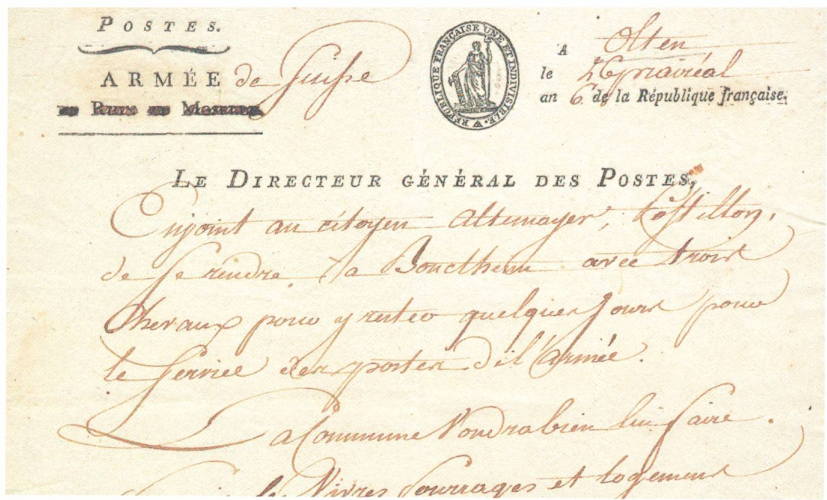 POSTES.
ARMÉE de Suisse
RÉPUBLIQUE FRANÇAISE UNE ET INDIVISIBLE.
A Olten
le 26 prairéal
an 6. de la République française.
LE DIRECTEUR GÉNÉRAL DES POSTES,
Enjoint au citoyen Altemayer, Postillon,
de se rendre à avec trois
Chevaux pour y rester quelques jours pour
le Service des postes de l'armée.
La Commune Voudra bien lui faire
les Vivres fourrages et logement